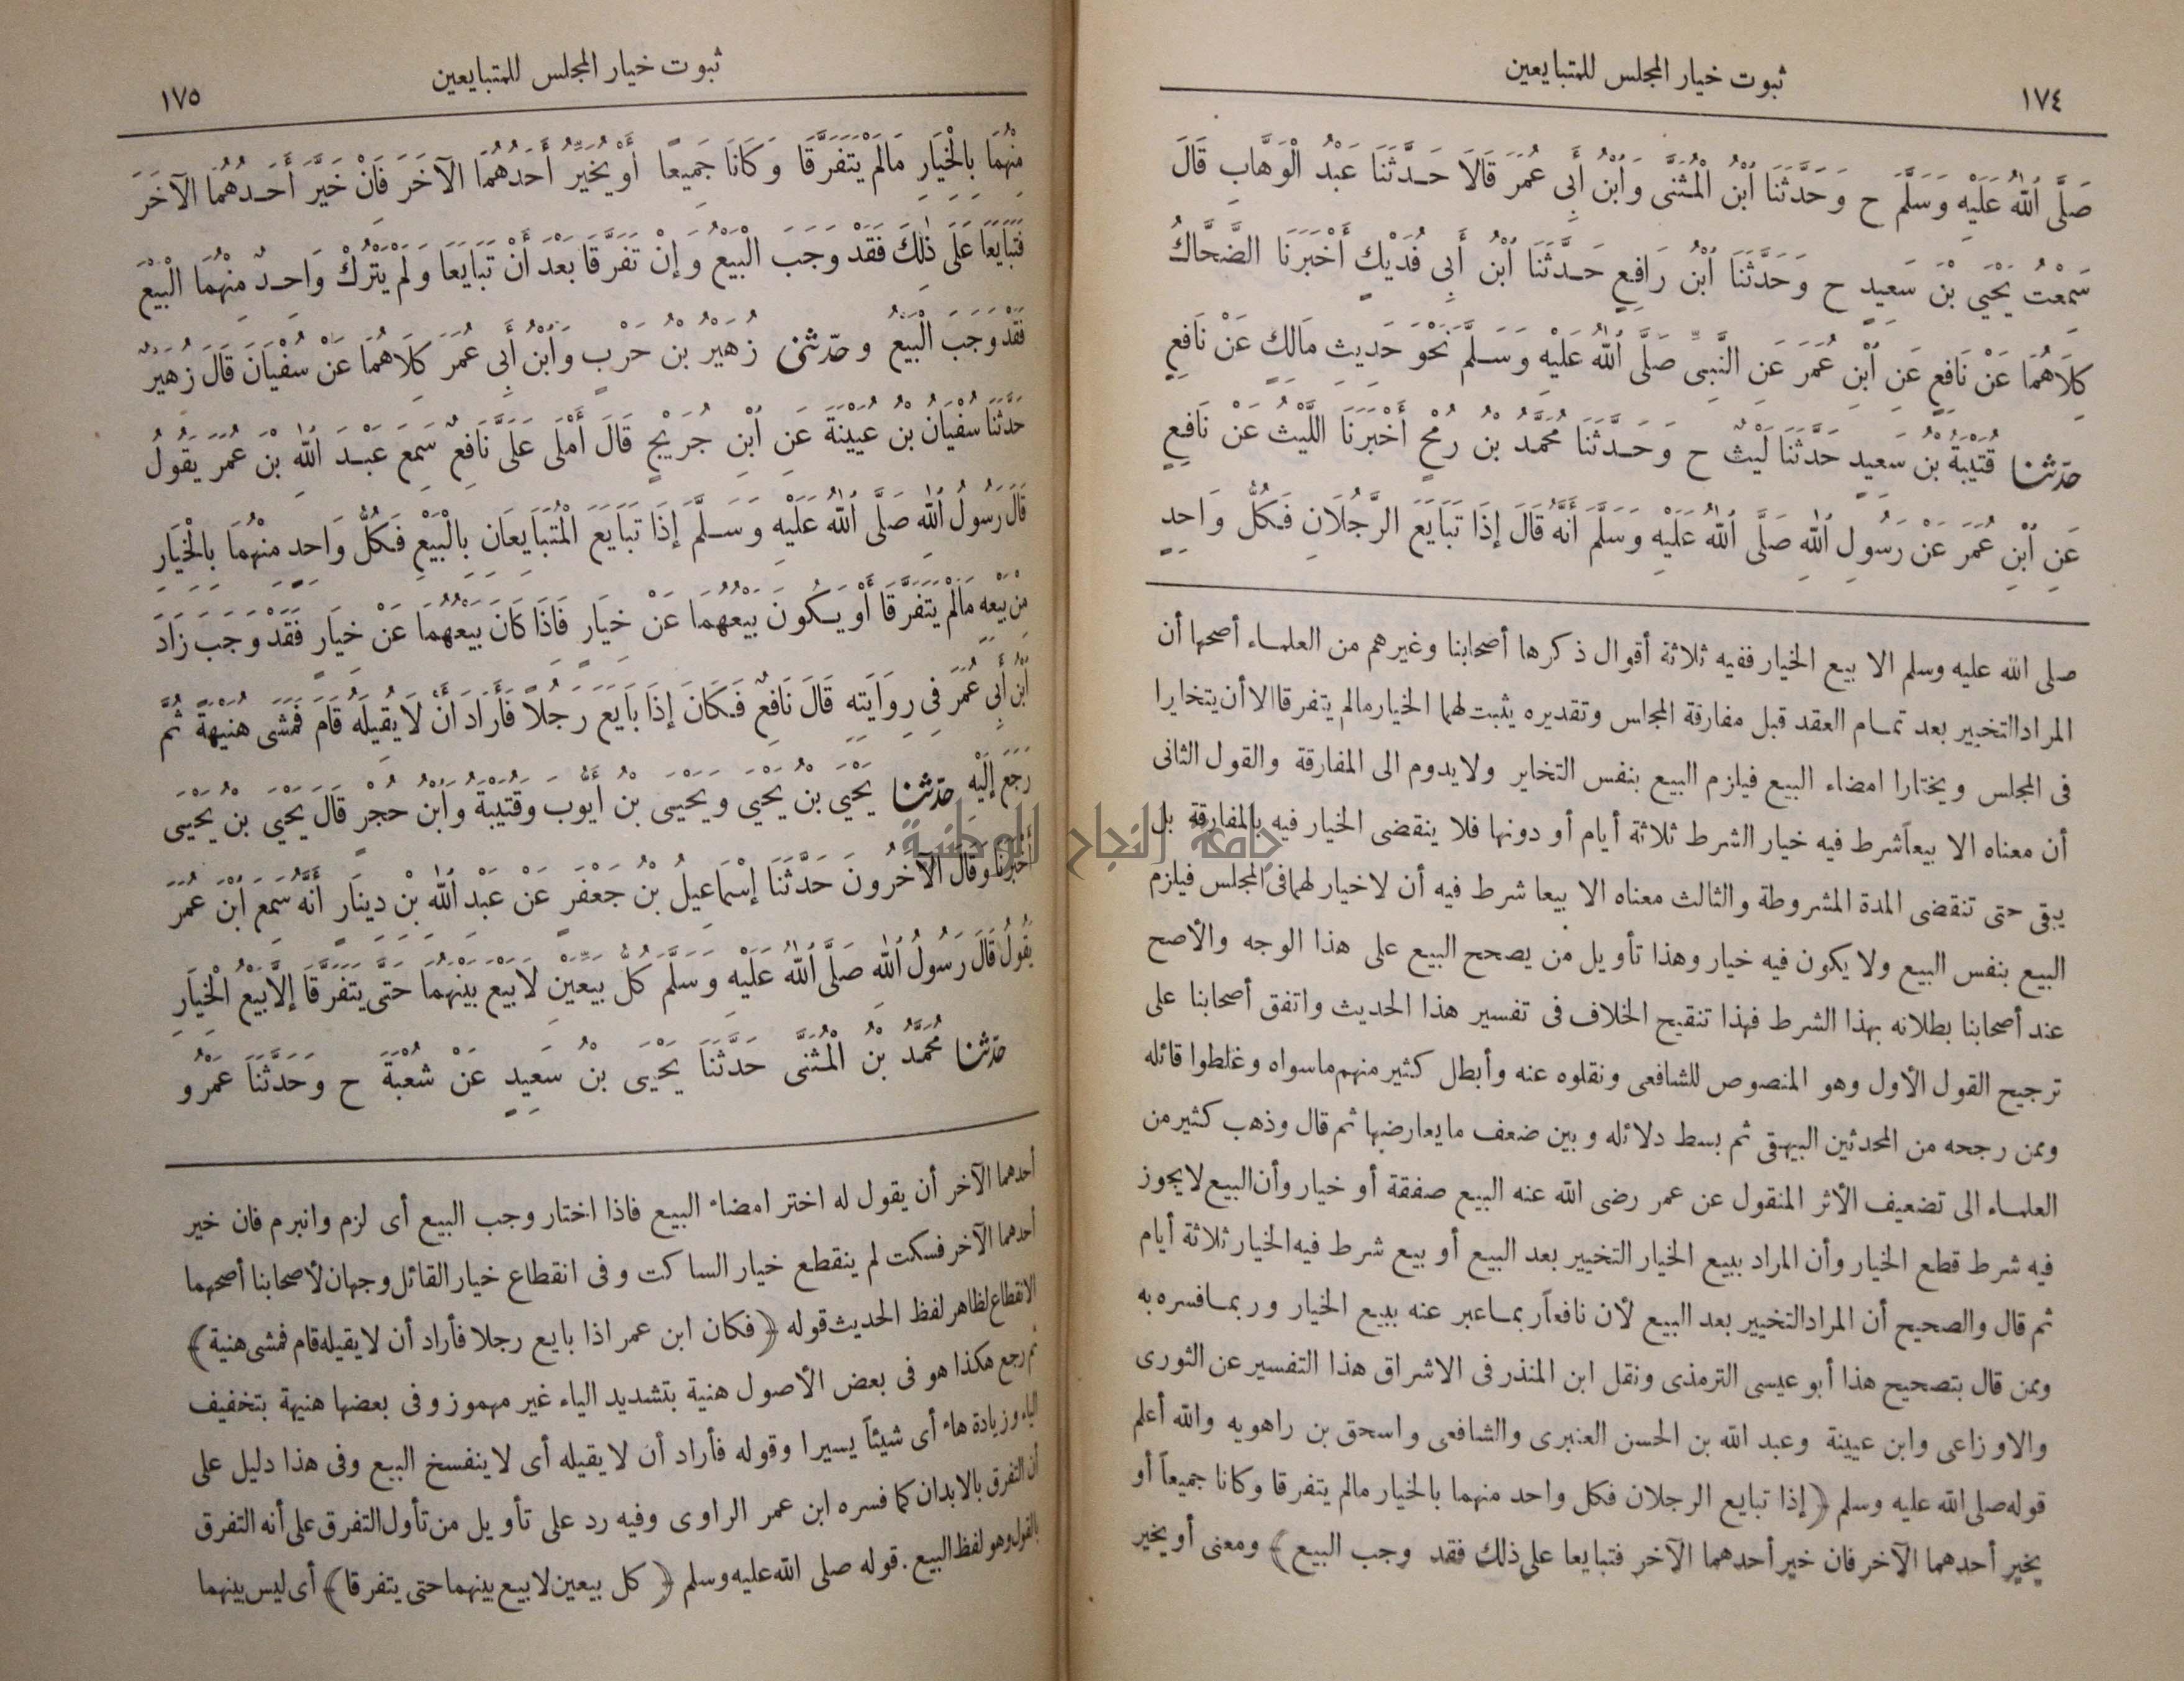 ١٧٤
ثبوت خيار المجلس للمتبايعين
صَلَّى اللهُ عَلَيْهِ وَسَلَّمَ ح وَحَدَّثَنَا ابْنُ الْمُثَنَّى وَابْنُ أَبِى عُمَرَ قَالَا حَدَّثَنَا عَبْدُ الْوَهَّابِ قَالَ
سَمِعْتُ يَحْيَى بْنَ سَعِيدٍ ح وَحَدَّثَنَا ابْنُ رَافِعٍ حَدَّثَنَا ابْنُ أَبِى فُدَيْكٍ أَخْبَرَنَا الضَّحَّاكُ
كِلَاهُمَا عَنْ نَافِعٍ عَنِ ابْنِ عُمَرَ عَنِ النَّبِىِّ صَلَّى اللهُ عَلَيْهِ وَسَلَّمَ نَحْوَ حَدِيثِ مَالِكٍ عَنْ نَافِعٍ
حدثنا قُتَيْبَةُ بْنُ سَعِيدٍ حَدَّثَنَا لَيْثٌ ح وَحَدَّثَنَا مُحَمَّدُ بْنُ رُمْحٍ أَخْبَرَنَا اللَّيْثُ عَنْ نَافِعٍ
عَنِ ابْنِ عُمَرَ عَنْ رَسُولِ اللهِ صَلَّى اللهُ عَلَيْهِ وَسَلَّمَ أَنَّهُ قَالَ إِذَا تَبَايَعَ الرَّجُلَانِ فَكُلُّ وَاحِدٍ
صلى الله عليه وسلم الا بيع الخيار ففيه ثلاثة أقوال ذكرها أصحابنا وغيرهم من العلماء أصحها أن
المراد التخيير بعد تمام العقد قبل مفارقة المجلس وتقديره يثبت لهما الخيار مالم يتفرقا الا أن يتخايرا
فى المجلس ويختارا امضاء البيع فيلزم البيع بنفس التخاير ولا يدوم الى المفارقة والقول الثانى
أن معناه الا بيعاً شرط فيه خيار الشرط ثلاثة أيام أو دونها فلا ينقضى الخيار فيه بالمفارقة بل
يبقى حتى تنقضى المدة المشروطة والثالث معناه الا بيعا شرط فيه أن لا خيار لهما فى المجلس فيلزم
البيع بنفس البيع ولا يكون فيه خيار وهذا تأويل من يصحح البيع على هذا الوجه والأصح
عند أصحابنا بطلانه بهذا الشرط فهذا تنقيح الخلاف فى تفسير هذا الحديث واتفق أصحابنا على
ترجيح القول الأول وهو المنصوص للشافعى ونقلوه عنه وأبطل كثير منهم ماسواه وغلطوا قائله
وممن رجحه من المحدثين البيهقى ثم بسط دلائله وبين ضعف ما يعارضها ثم قال وذهب كثير من
العلماء الى تضعيف الأثر المنقول عن عمر رضى الله عنه البيع صفقة أو خيار وأن البيع لا يجوز
فيه شرط قطع الخيار وأن المراد ببيع الخيار التخيير بعد البيع أو بيع شرط فيه الخيار ثلاثة أيام
ثم قال والصحيح أن المراد التخيير بعد البيع لأن نافعاً ربما عبر عنه ببيع الخيار وربما فسره به
وممن قال بتصحيح هذا أبو عيسى الترمذى ونقل ابن المنذر فى الاشراق هذا التفسير عن الثورى
والاوزاعى وابن عيينة وعبد الله بن الحسن العنبرى والشافعى واسحق بن راهويه والله أعلم
قوله صلى الله عليه وسلم ﴿إذا تبايع الرجلان فكل واحد منهما بالخيار مالم يتفرقا وكانا جميعاً أو
يخير أحدهما الآخر فان خير أحدهما الآخر فتبايعا على ذلك فقد وجب البيع﴾ ومعنى أو يخير
ثبوت خيار المجلس للمتبايعين
١٧٥
مِنْهُمَا بِالْخِيَارِ مَالَمْ يَتَفَرَّقَا وَكَانَا جَمِيعًا أَوْ يُخَيِّرُ أَحَدُهُمَا الْآخَرَ فَإِنْ خَيَّرَ أَحَدُهُمَا الْآخَرَ
فَتَبَايَعَا عَلَى ذٰلِكَ فَقَدْ وَجَبَ الْبَيْعُ وَإِنْ تَفَرَّقَا بَعْدَ أَنْ تَبَايَعَا وَلَمْ يَتْرُكْ وَاحِدٌ مِنْهُمَا الْبَيْعَ
فَقَدْ وَجَبَ الْبَيْعُ وحدثنى زُهَيْرُ بْنُ حَرْبٍ وَابْنُ أَبِى عُمَرَ كِلَاهُمَا عَنْ سُفْيَانَ قَالَ زُهَيْرٌ
حَدَّثَنَا سُفْيَانُ بْنُ عُيَيْنَةَ عَنِ ابْنِ جُرَيْجٍ قَالَ أَمْلَى عَلَىَّ نَافِعٌ سَمِعَ عَبْدَ اللهِ بْنَ عُمَرَ يَقُولُ
قَالَ رَسُولُ اللهِ صَلَّى اللهُ عَلَيْهِ وَسَلَّمَ إِذَا تَبَايَعَ الْمُتَبَايِعَانِ بِالْبَيْعِ فَكُلُّ وَاحِدٍ مِنْهُمَا بِالْخِيَارِ
مِنْ بَيْعِهِ مَالَمْ يَتَفَرَّقَا أَوْ يَكُونَ بَيْعُهُمَا عَنْ خِيَارٍ فَإِذَا كَانَ بَيْعُهُمَا عَنْ خِيَارٍ فَقَدْ وَجَبَ زَادَ
ابْنُ أَبِى عُمَرَ فِى رِوَايَتِهِ قَالَ نَافِعٌ فَكَانَ إِذَا بَايَعَ رَجُلًا فَأَرَادَ أَنْ لَا يُقِيلَهُ قَامَ فَمَشَى هُنَيْهَةً ثُمَّ
رَجَعَ إِلَيْهِ حدثنا يَحْيَى بْنُ يَحْيَى وَيَحْيَى بْنُ أَيُّوبَ وَقُتَيْبَةُ وَابْنُ حُجْرٍ قَالَ يَحْيَى بْنُ يَحْيَى
أَخْبَرَنَا وَقَالَ الْآخَرُونَ حَدَّثَنَا إِسْمَاعِيلُ بْنُ جَعْفَرٍ عَنْ عَبْدِ اللهِ بْنِ دِينَارٍ أَنَّهُ سَمِعَ ابْنَ عُمَرَ
يَقُولُ قَالَ رَسُولُ اللهِ صَلَّى اللهُ عَلَيْهِ وَسَلَّمَ كُلُّ بَيِّعَيْنِ لَا بَيْعَ بَيْنَهُمَا حَتَّى يَتَفَرَّقَا إِلَّا بَيْعُ الْخِيَارِ
حدثنا مُحَمَّدُ بْنُ الْمُثَنَّى حَدَّثَنَا يَحْيَى بْنُ سَعِيدٍ عَنْ شُعْبَةَ ح وَحَدَّثَنَا عَمْرُو
أحدهما الآخر أن يقول له اختر امضاء البيع فاذا اختار وجب البيع أى لزم وانبرم فان خير
أحدهما الآخر فسكت لم ينقطع خيار الساكت وفى انقطاع خيار القائل وجهان لأصحابنا أصحهما
الانقطاع لظاهر لفظ الحديث قوله ﴿فكان ابن عمر اذا بايع رجلا فأراد أن لا يقيله قام فمشى هنية﴾
ثم رجع هكذا هو فى بعض الأصول هنية بتشديد الياء غير مهموز وفى بعضها هنيهة بتخفيف
الياء وزيادة هاء أى شيئاً يسيرا وقوله فأراد أن لا يقيله أى لا ينفسخ البيع وفى هذا دليل على
أن التفرق بالابدان كما فسره ابن عمر الراوى وفيه رد على تأويل من تأول التفرق على أنه التفرق
بالقول وهو لفظ البيع . قوله صلى الله عليه وسلم ﴿كل بيعين لا بيع بينهما حتى يتفرقا﴾ أى ليس بينهما
جامعة النجاح الوطنية